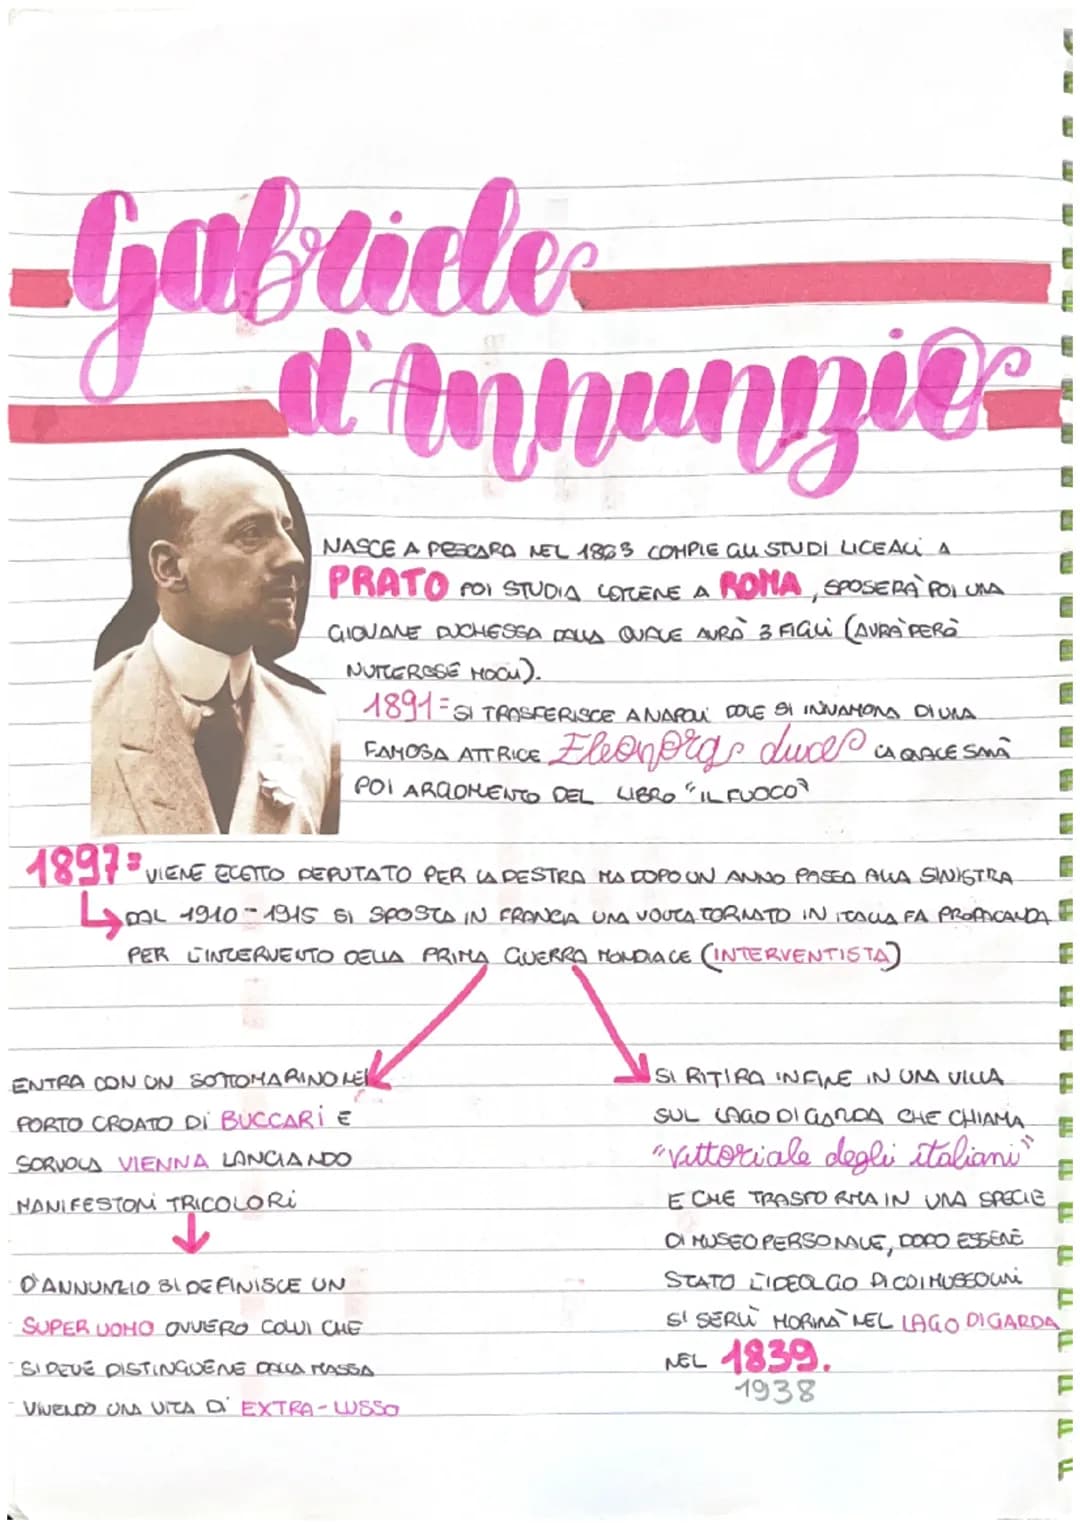 Gabriele
d'Annunzio
NASCE A PESCARA NEL 1863 COMPIE GLI STUDI LICEALI A
PRATO POI STUDIA LETTERE A ROMA, SPOSERÀ POI UNA
GIOVANE DUCHESSA DALLA QUALE AURÀ 3 FIGLI (AURÀ PERÒ
NUMEROSE MOGLI).
1891= SI TRASFERISCE A NAPOLI DOVE SI INNAMORA DI UNA
FAMOSA ATTRICE Eleonora duce LA QUALE SARÀ
POI ARGOMENTO DEL LIBRO "IL FUOCO"
1897= VIENE ELETTO DEPUTATO PER LA DESTRA MA DOPO UN ANNO PASSA ALLA SINISTRA
DAL 1910-1915 SI SPOSTA IN FRANCIA UNA VOLTA TORNATO IN ITALIA FA PROPAGANDA
PER L'INTERVENTO DELLA PRIMA GUERRA MONDIALE (INTERVENTISTA)
ENTRA CON UN SOTTOMARINO NEL
PORTO CROATO DI BUCCARI E
SORVOLA VIENNA LANCIANDO
MANIFESTONI TRICOLORI
D'ANNUNZIO SI DEFINISCE UN
SUPER UOMO OVVERO COLUI CHE
SI DEVE DISTINGUERE DALLA MASSA
VIVENDO UNA VITA DI EXTRA-LUSSO
SI RITIRA INFINE IN UNA VILLA
SUL LAGO DI GARDA CHE CHIAMA
"Vittoriale degli italiani"
E CHE TRASFORMA IN UNA SPECIE
DI MUSEO PERSONALE, DOPO ESSERE
STATO L'IDEOLGIO DI COI MUSSOLINI
SI SERLÌ MORIRÀ NEL LAGO DI GARDA
NEL 1839.
1938